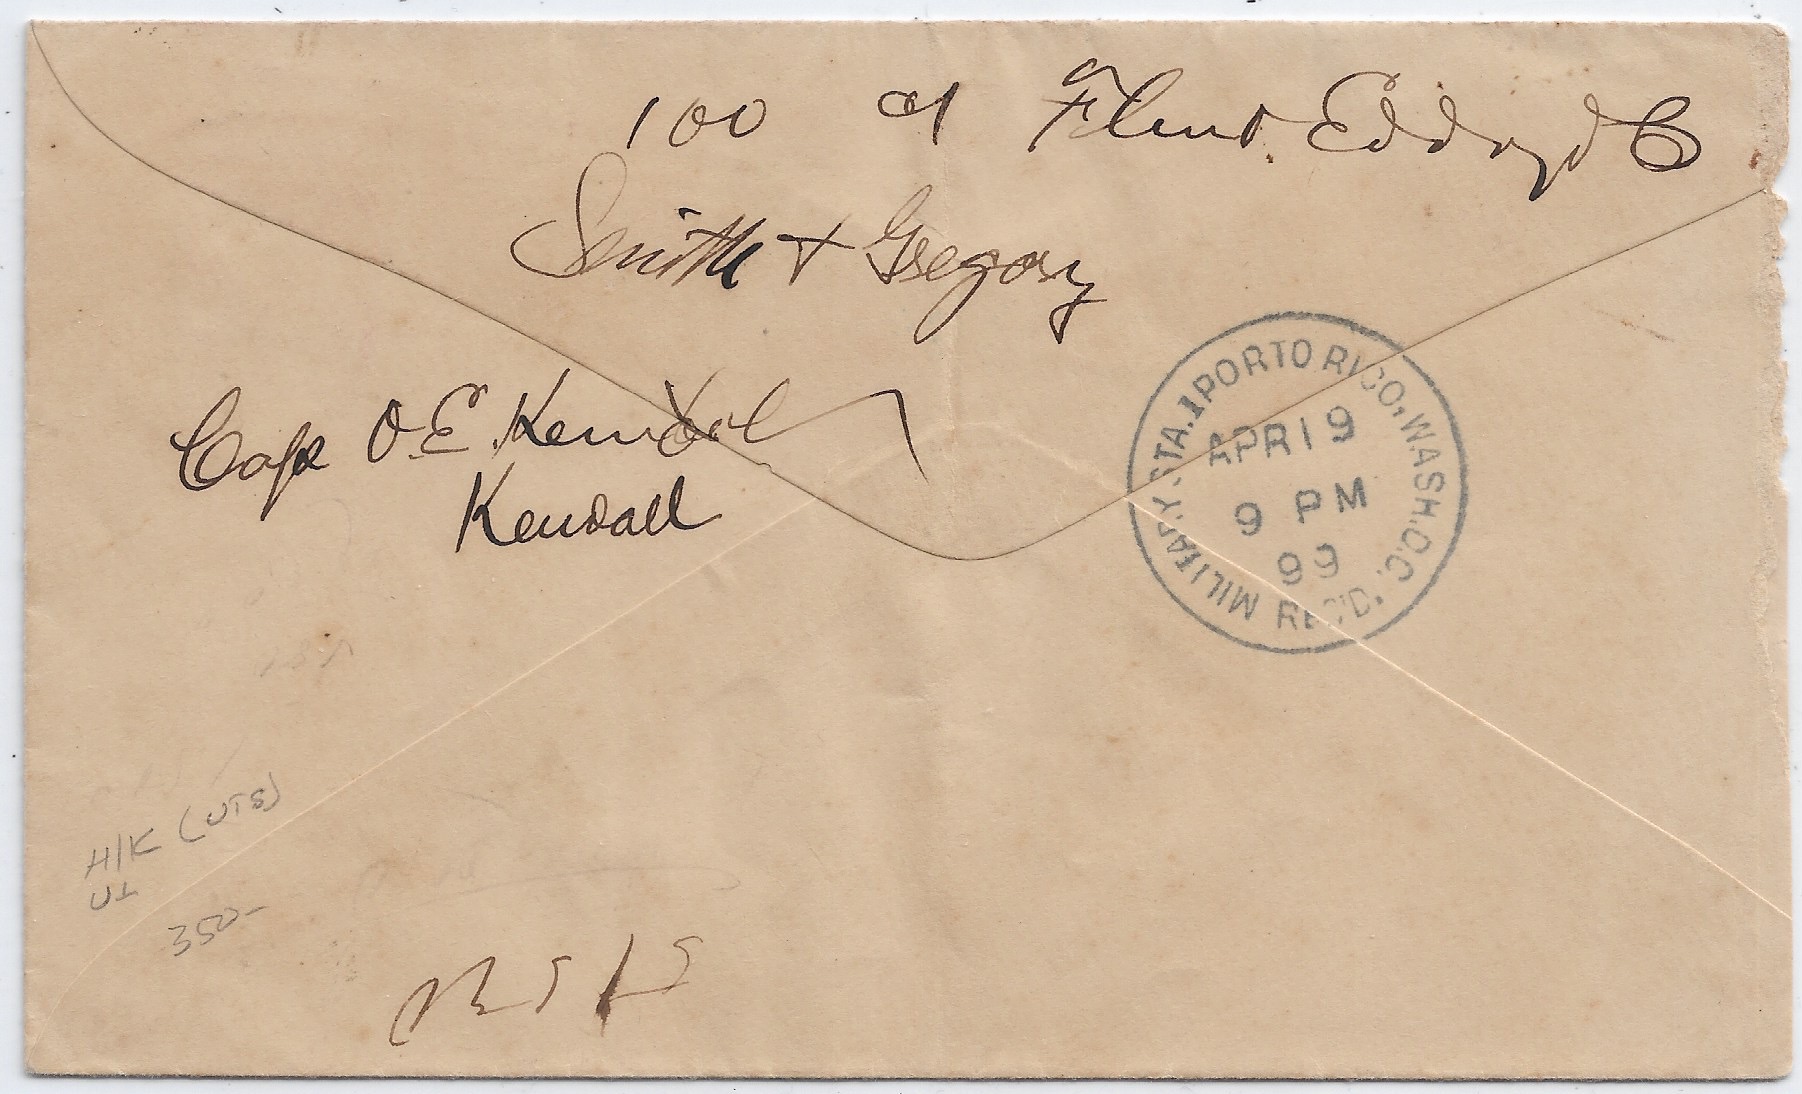 100 at Flint Eddy & Co
Smith + Gregory
Cap O.E. Kendal
Kendall
MILITARY STA. 1 PORTO RICO, WASH. D.C.
APR 19
9 PM
99
REC'D.
H/K (UTS)
UT
350-